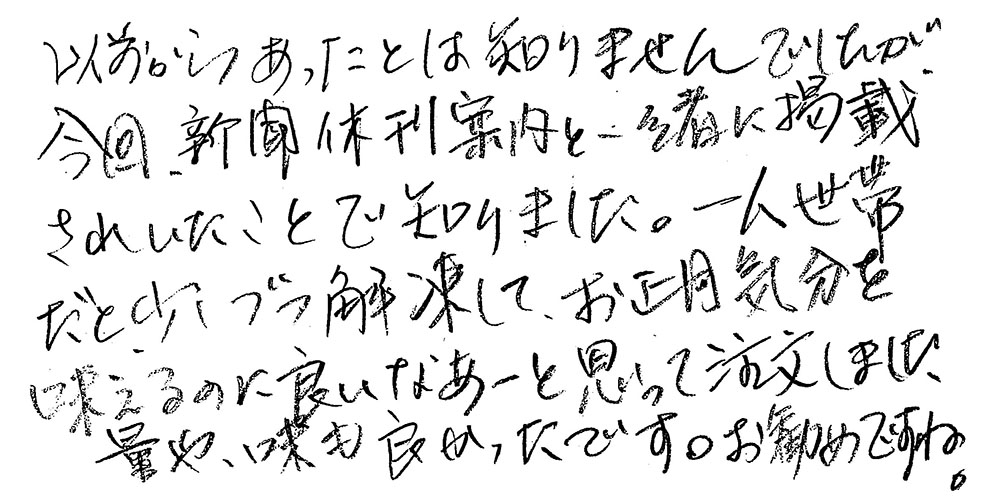 以前からあったことは知りませんでしたが、
今回、新聞休刊案内と一緒に掲載
されいたことで知りました。一人世帯
だと少しづつ解凍して、お正月気分を
味えるのに良いなあーと思って注文しました
量や、味も良かったです。お勧めですね。